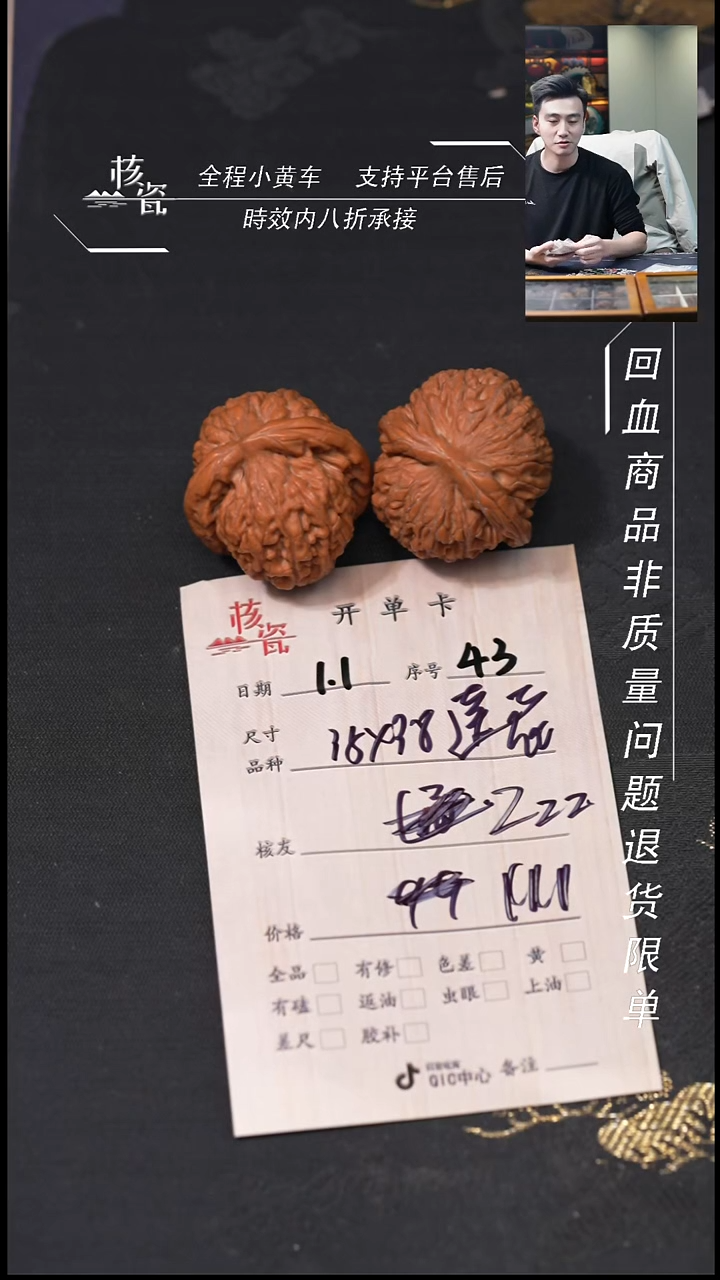 核瓷
全程小黄车 支持平台售后
時效内八折承接
回血商品非质量问题退货限单
核瓷
开单卡
日期 1.1 序号 43
尺寸
品种
核友 222
价格
全品 有修 色差 黄
有磕 返油 虫眼 上油
差尺 胶补
QIC中心 备注